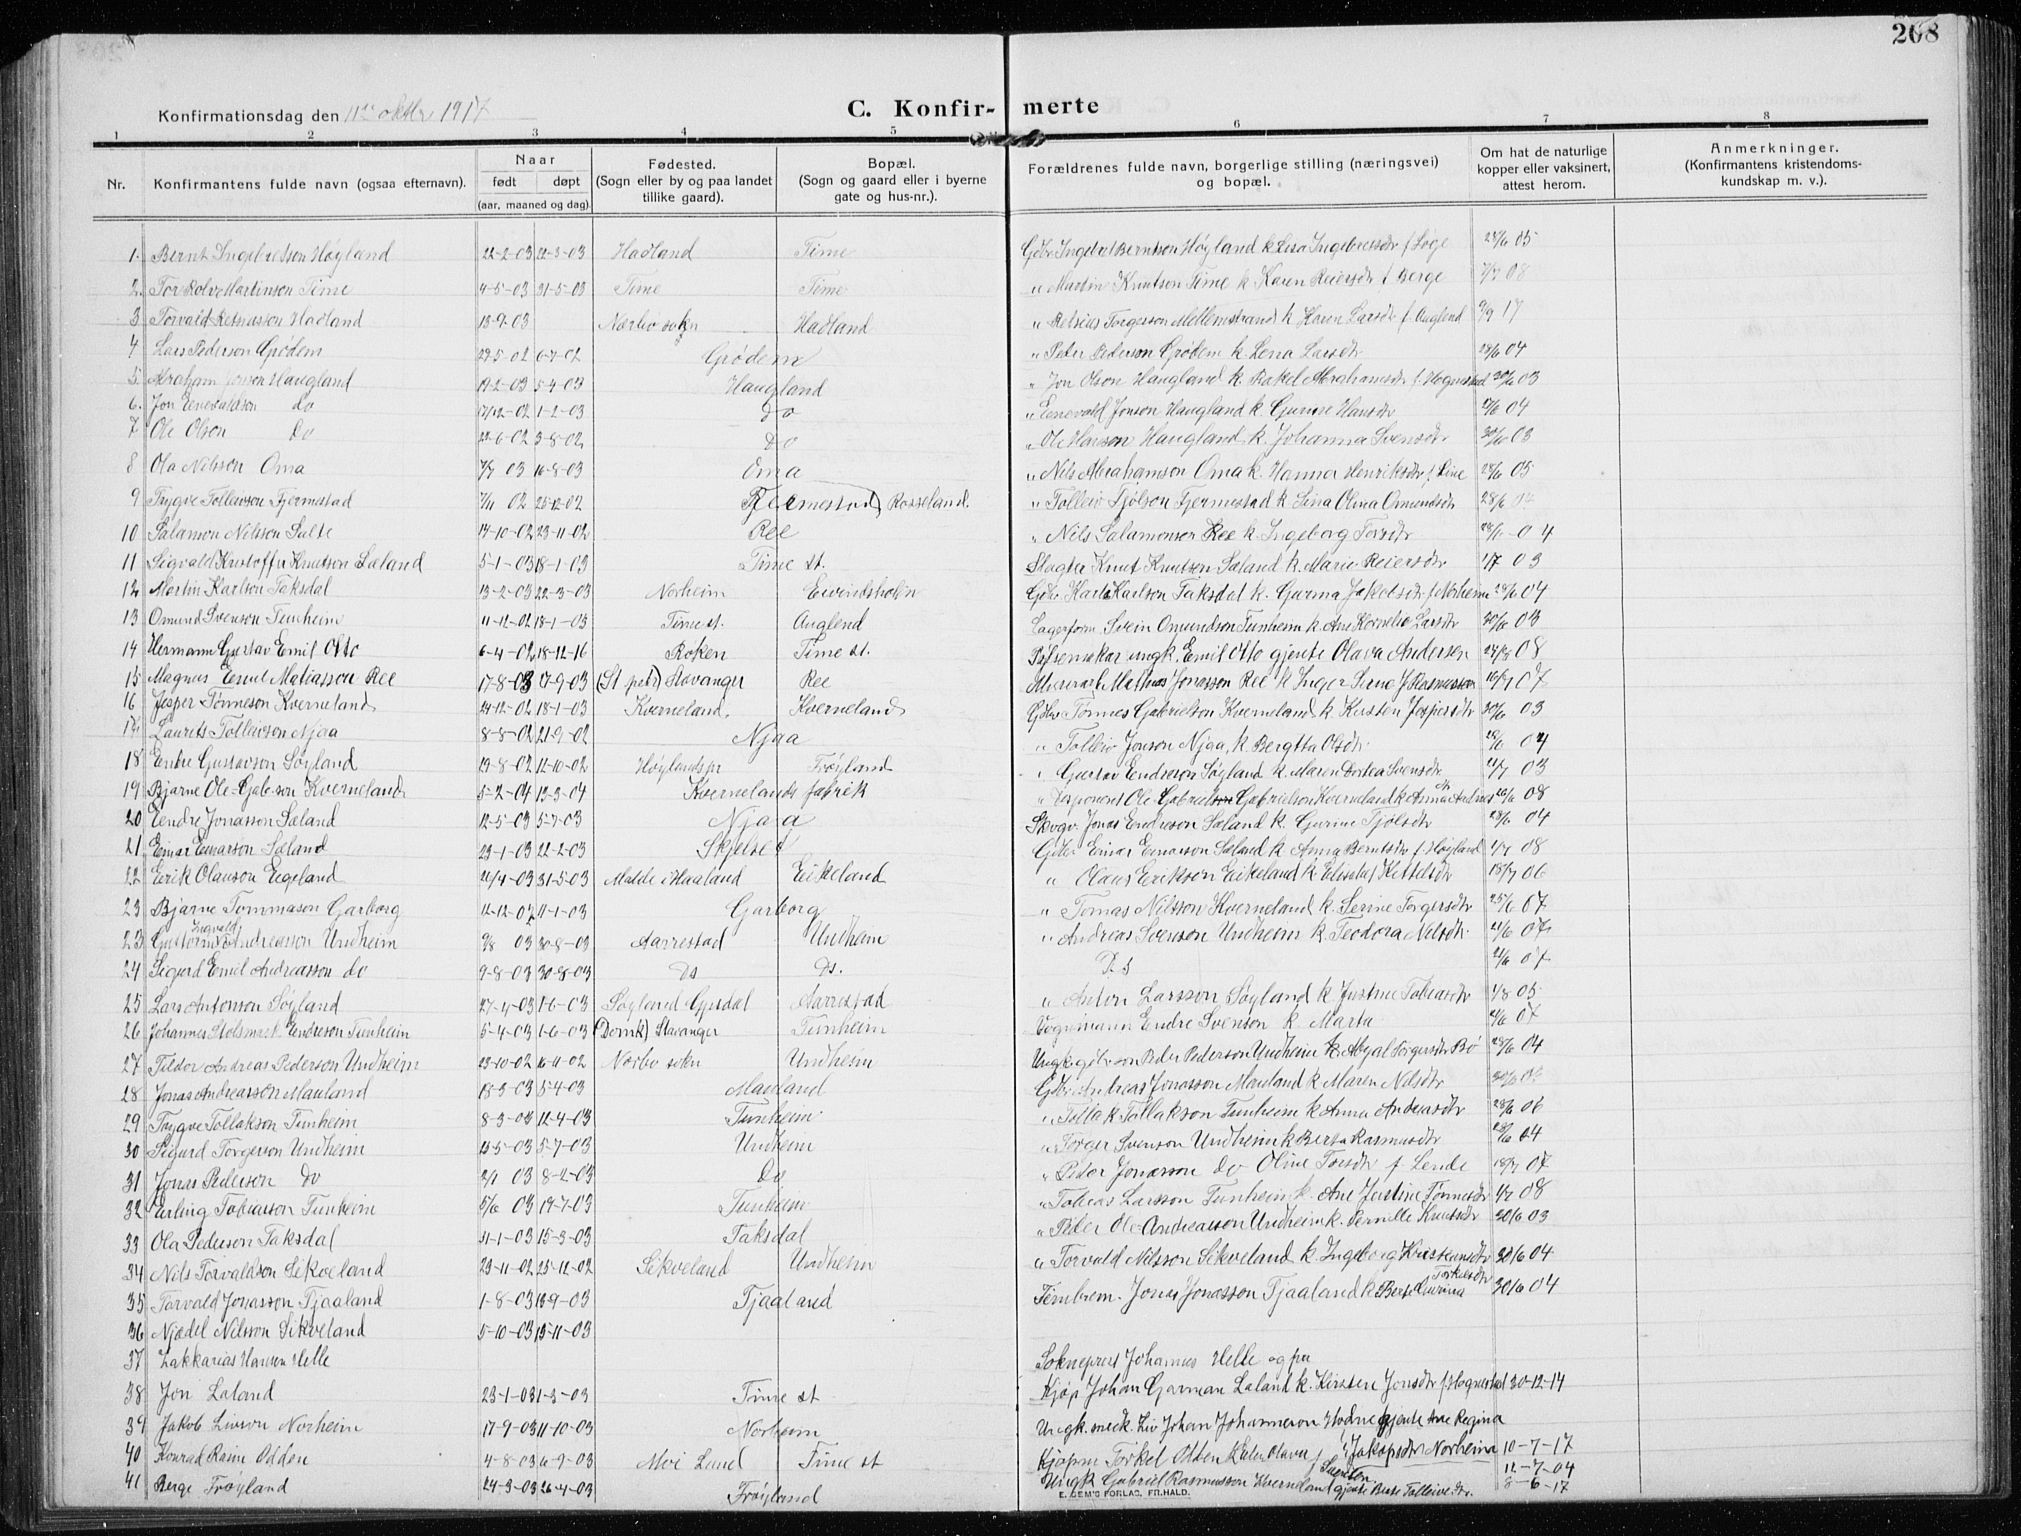 208
Konfirmationsdag den 11te oktbr 1917
C. Konfirmerte
1 2 3 4 5 6 7 8
Nr. Konfirmantens fulde navn (ogsaa efternavn). Naar født døpt (aar, maaned og dag). Fødested. (Sogn eller by og paa landet tillike gaard). Bopæl. (Sogn og gaard eller i byerne gate og hus-nr.). Forældrenes fulde navn, borgerlige stilling (næringsvei) og bopæl. Om hat de naturlige kopper eller vaksinert, attest herom. Anmerkninger. (Konfirmantens kristendomskundskap m. v.).
1. Bernt Ingebretson Høyland 22-2-03 22-3-03 Hadland Time Gdbr Ingebret Berntson Høyland k Lisa Ingebretsdr f Løge 03
2. Tor Rolv Martinson Time 4-5-03 31-5-03 Time Time " Martin Knutson Time k Karen Reiersdr f Berge 08
3 Torvald Retsiusson Hadland 13-9-03 Nærbø sokn Hadland " Retsius Torgerson Mellemstrand k Karen Larsdr f Auglend 17
4 Lars Pederson Grødem 02 6-7-02 Grødem " Peder Pederson Grødem k. Lena Larsdr 04
5. Abraham Jonson Haugland 03 5-4-03 Haugland " Jon Olson Haugland k. Rakel Abrahamsdr f. Hognestad 03
6. Jon Enevaldson do 02 1-2-03 do " Enevald Jonson Haugland k. Gurine Hansdr 04
7 Ole Olson Do 22-6-02 3-8-02 Do " Ole Hanson Haugland k. Johanna Svensdr 03
8 Ola Nilsson Oma 03 16-8-03 Oma " Nils Abrahamson Oma k. Hanna Henriksdr f. Line 05
9 Trygve Tolleivson Fjermestad 02 25-12-02 Fjermestad Rosseland. " Tolleiv Tjølson Fjermestad k Sina Olina Omundsdr
10 Salamon Nilsson Salte 14-10-02 23-11-02 Ree " Nils Salamonson Ree k Ingeborg Torsdr 04
11 Sigvald Kristoffer Knutson Sæland 5-1-03 18-1-03 Time st. Slagter Knut Knutson Sæland k. Marie Reiersdr 03
12 Martin Karlson Taksdal 13-2-03 22-3-03 Norheim Eivindsholen Gdbr. Karl Karlson Taksdal k. Gurina Jakobsdr f Norheim 04
13 Omund Svenson Tunheim 11-12-02 18-1-03 Time st. Auglend Lagerform. Svein Omundson Tunheim k. Ane Kornelia Larsdr 03
14 Hermann Gustav Emil Otto 6-4-02 18-12-16 Røken Time st. Pølsemaker ungk. Emil Otto gjente Olava Andersen 08
15 Magnus Emil Matiasson Ree 17-8-03 7-9-03 (St petri) Stavanger Ree Murerarb. Mathias Jonasson Ree k Inger Serine f. Rasmusson 07
16 Jesper Tønneson Kverneland 24-12-02 18-1-03 Kverneland Kverneland Gdbr Tønnes Gabrielson Kverneland k. Kirsten Jespersdr 03
17 Laurits Tolleivson Njaa 8-8-02 21-9-02 Njaa " Tolleiv Jonson Njaa, k. Bergtta Olsdr 04
18 Endre Gustavson Søyland 02 12-10-02 Høylandspr Frøyland " Gustav Endreson Søyland k. Maren Dortea Svensdr 03
19 Bjarne Ole-Gab-son Kverneland 5-2-04 13-3-04 Kvernelands fabrik " Disponent Ole Gabrielson Gabrielson Kverneland k Anna 08
20 Endre Jonasson Sæland 12-5-03 5-7-03 Njaa Skogv. Jonas Endreson Sæland k. Gurine Tjølsdr 04
21 Einar Einarson Sæland 23-1-03 22-2-03 Gdbr Einar Einarson Sæland k. Anna Berntsdr f Høyland 08
22 Erik Olauson Eigeland 03 31-5-03 Malde i Haaland Eikeland " Olaus Erikson Eikeland k Elisabet Ketilsdr 06
23 Bjarne Tommason Garborg 12-12-02 11-1-03 Garborg " Tomas Nilsson Kverneland k. Serine Torgersdr 07
23 Guttorm Ingvald Andreasson Undheim 03 30-8-03 Aarrestad Undheim " Andreas Svenson Undheim k. Teodora Nilsdr. 07
24 Sigurd Emil Andreasson do 9-8-03 30-8-03 Ds Ds. Ds 07
25 Lars Antonson Søyland 27-4-03 1-6-03 Søyland Gjesdal Aarrestad " Anton Larsson Søyland k Justine Tobiasdr 05
26 Johannes Holsmark Endreson Tunheim 5-4-03 1-6-03 (Domk) Stavanger Tunheim Vognmann Endre Svenson k. Marta 07
27 Tildor Andreas Pederson Undheim 23-10-02 16-11-02 Nærbø sokn Undheim Ungk gdbrson Peder Pederson Undheim k Abigal Torgersdr Bø 04
28 Jonas Andreasson Mauland 18-3-03 5-4-03 Mauland Gdbr. Andreas Jonasson Mauland k Maren Nilsdr
29 Trygve Tollakson Tunheim 8-3-03 12-4-03 Tunheim " Tollak Tollakson Tunheim k Anna Andreasdr 06
30 Sigurd Torgerson Undheim 03 5-7-03 Undheim " Torger Svenson Undheim k Berta Rasmusdr 04
31 Jonas Pederson Do 03 8-2-03 Do " Peder Jonasson do Oline Torsdr f. Lende 07
32 Erling Tobiasson Tunheim 03 19-7-03 Tunheim " Tobias Larsson Tunheim k. Ane Justine Tønnesdr 08
33 Ola Pederson Taksdal 31-1-03 15-3-03 Taksdal " Peder Ole Andreasson Undheim k. Pernille Knutsdr 03
34 Nils Torvaldson Sikveland 23-11-02 25-12-02 Sikveland Undheim " Torvald Nilsson Sikveland k Ingeborg Kristensdr 30/6 04
35 Torvald Jonasson Tjaaland 1-8-03 13-9-03 Tjaaland Tømberm. Jonas Jonasson Tjaaland k Berte Gurina Torkelsdr 30/6 04
36 Njædel Nilsson Sikveland 5-10-03 15-11-03
37 Zakkarias Hansen Helle Sokneprest Johannes Helle og fru
38 Jon Laland 23-1-03 1-3-03 Time st Kjøp Johan Garman Laland k. Kirsten Jonsdr f Hognestad 30-12-14
39 Jakob Livson Norheim 17-9-03 11-10-03 Norheim Ungk. snedk. Liv Johan Johanneson Hodne gjente Ane Regina Jakopsdr Norheim 10-7-17
40 Konrad Reim Odden 4-8-03 6-9-03 Moi Lund Time st Kjøpm Torkel Odden k Elen Olava f 12-7-04
41 Berge Frøyland 24-3-03 26-4-03 Frøyland Ungk Gabriel Rasmusson Kverneland gjente Berte Tolleivs dr. 8-6-17
E. SEM'S FORLAG, FR.HALD.